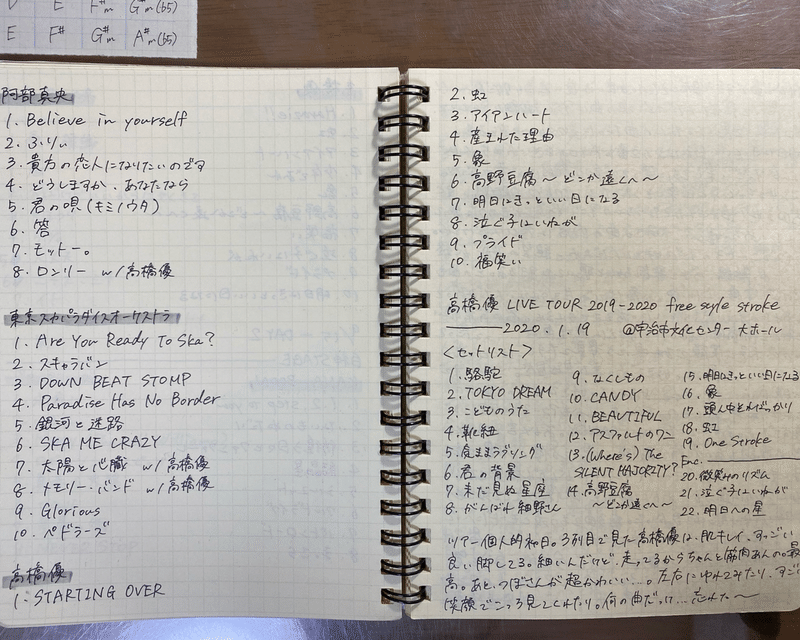 D E F#m G#m(b5)
E F# G#m A#m(b5)
阿部真央
1. Believe in yourself
2. ふりぃ
3. 貴方の恋人になりたいのです
4. どうしますか、あなたなら
5. 君の唄(キミノウタ)
6. 答
7. モットー。
8. ロンリー w/高橋優
東京スカパラダイスオーケストラ
1. Are You Ready To Ska?
2. スキャラバン
3. DOWN BEAT STOMP
4. Paradise Has No Border
5. 銀河と迷路
6. SKA ME CRAZY
7. 太陽と心臓 w/高橋優
8. メモリー・バンド w/高橋優
9. Glorious
10. ペドラーズ
高橋優
1. STARTING OVER
2. 虹
3. アイアンハート
4. 産まれた理由
5. 象
6. 高野豆腐〜どこか遠くへ〜
7. 明日はきっといい日になる
8. 泣ぐ子はいねが
9. プライド
10. 福笑い
高橋優 LIVE TOUR 2019-2020 free style stroke
2020.1.19 @宇治市文化センター 大ホール
<セットリスト>
1. 駱駝
2. TOKYO DREAM
3. こどものうた
4. 靴紐
5. 食ままラブソング
6. 君の背景
7. 未だ見ぬ星座
8. がんばれ細野さん
9. なくしもの
10. CANDY
11. BEAUTIFUL
12. アスファルトのワニ
13. (Where's) The
SILENT MAJORITY?
14. 高野豆腐
〜どこか遠くへ〜
15. 明日はきっといい日になる
16. 象
17. 頭ん中そればっかり
18. 虹
19. One Stroke
Enc.
20. 微笑みのリズム
21. 泣ぐ子はいねが
22. 明日への星
ツアー個人的初日。3列目で見た高橋優は、肌キレイ、すっごい
良い脚してる。細いんだけど、走ってるからちゃんと筋肉あんの。最
高。あと、つぼさんが超かわいい…。左右にゆれてみたり、すご
笑顔でこっち見てくれたり。何の曲だっけ…忘れた〜